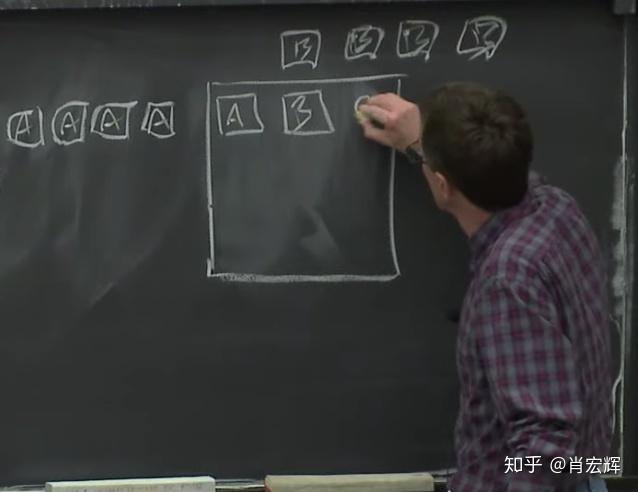 B B B B
A A A A A B
知乎 @肖宏辉